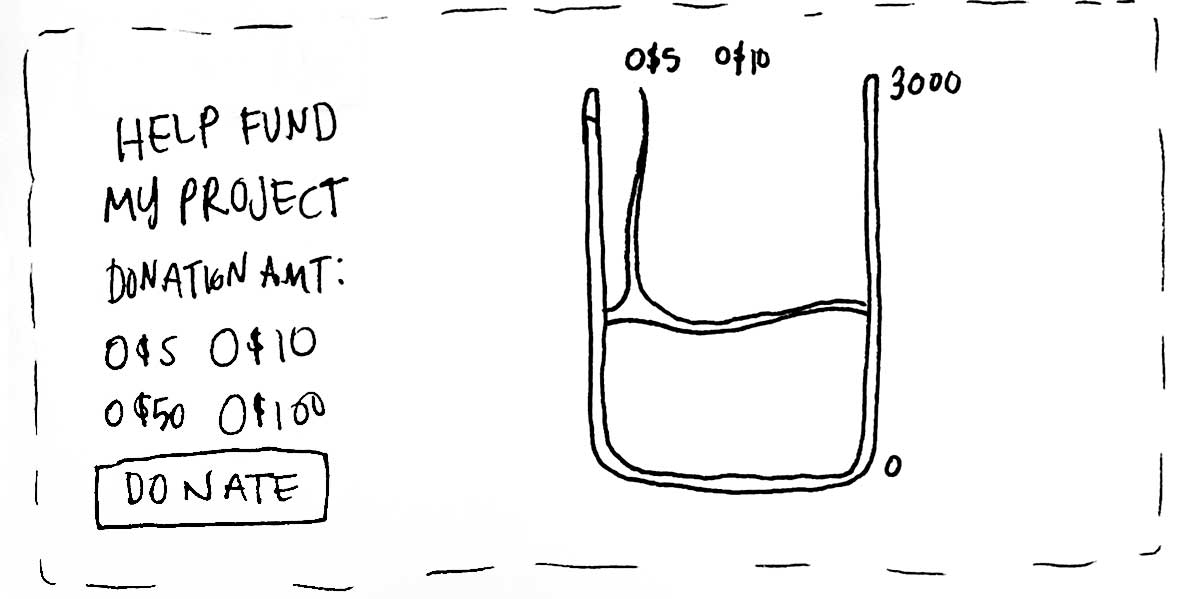 HELP FUND
MY PROJECT
DONATION AMT:
O $5 O $10
O $50 O $100
DONATE
O $5 O $10
3000
0